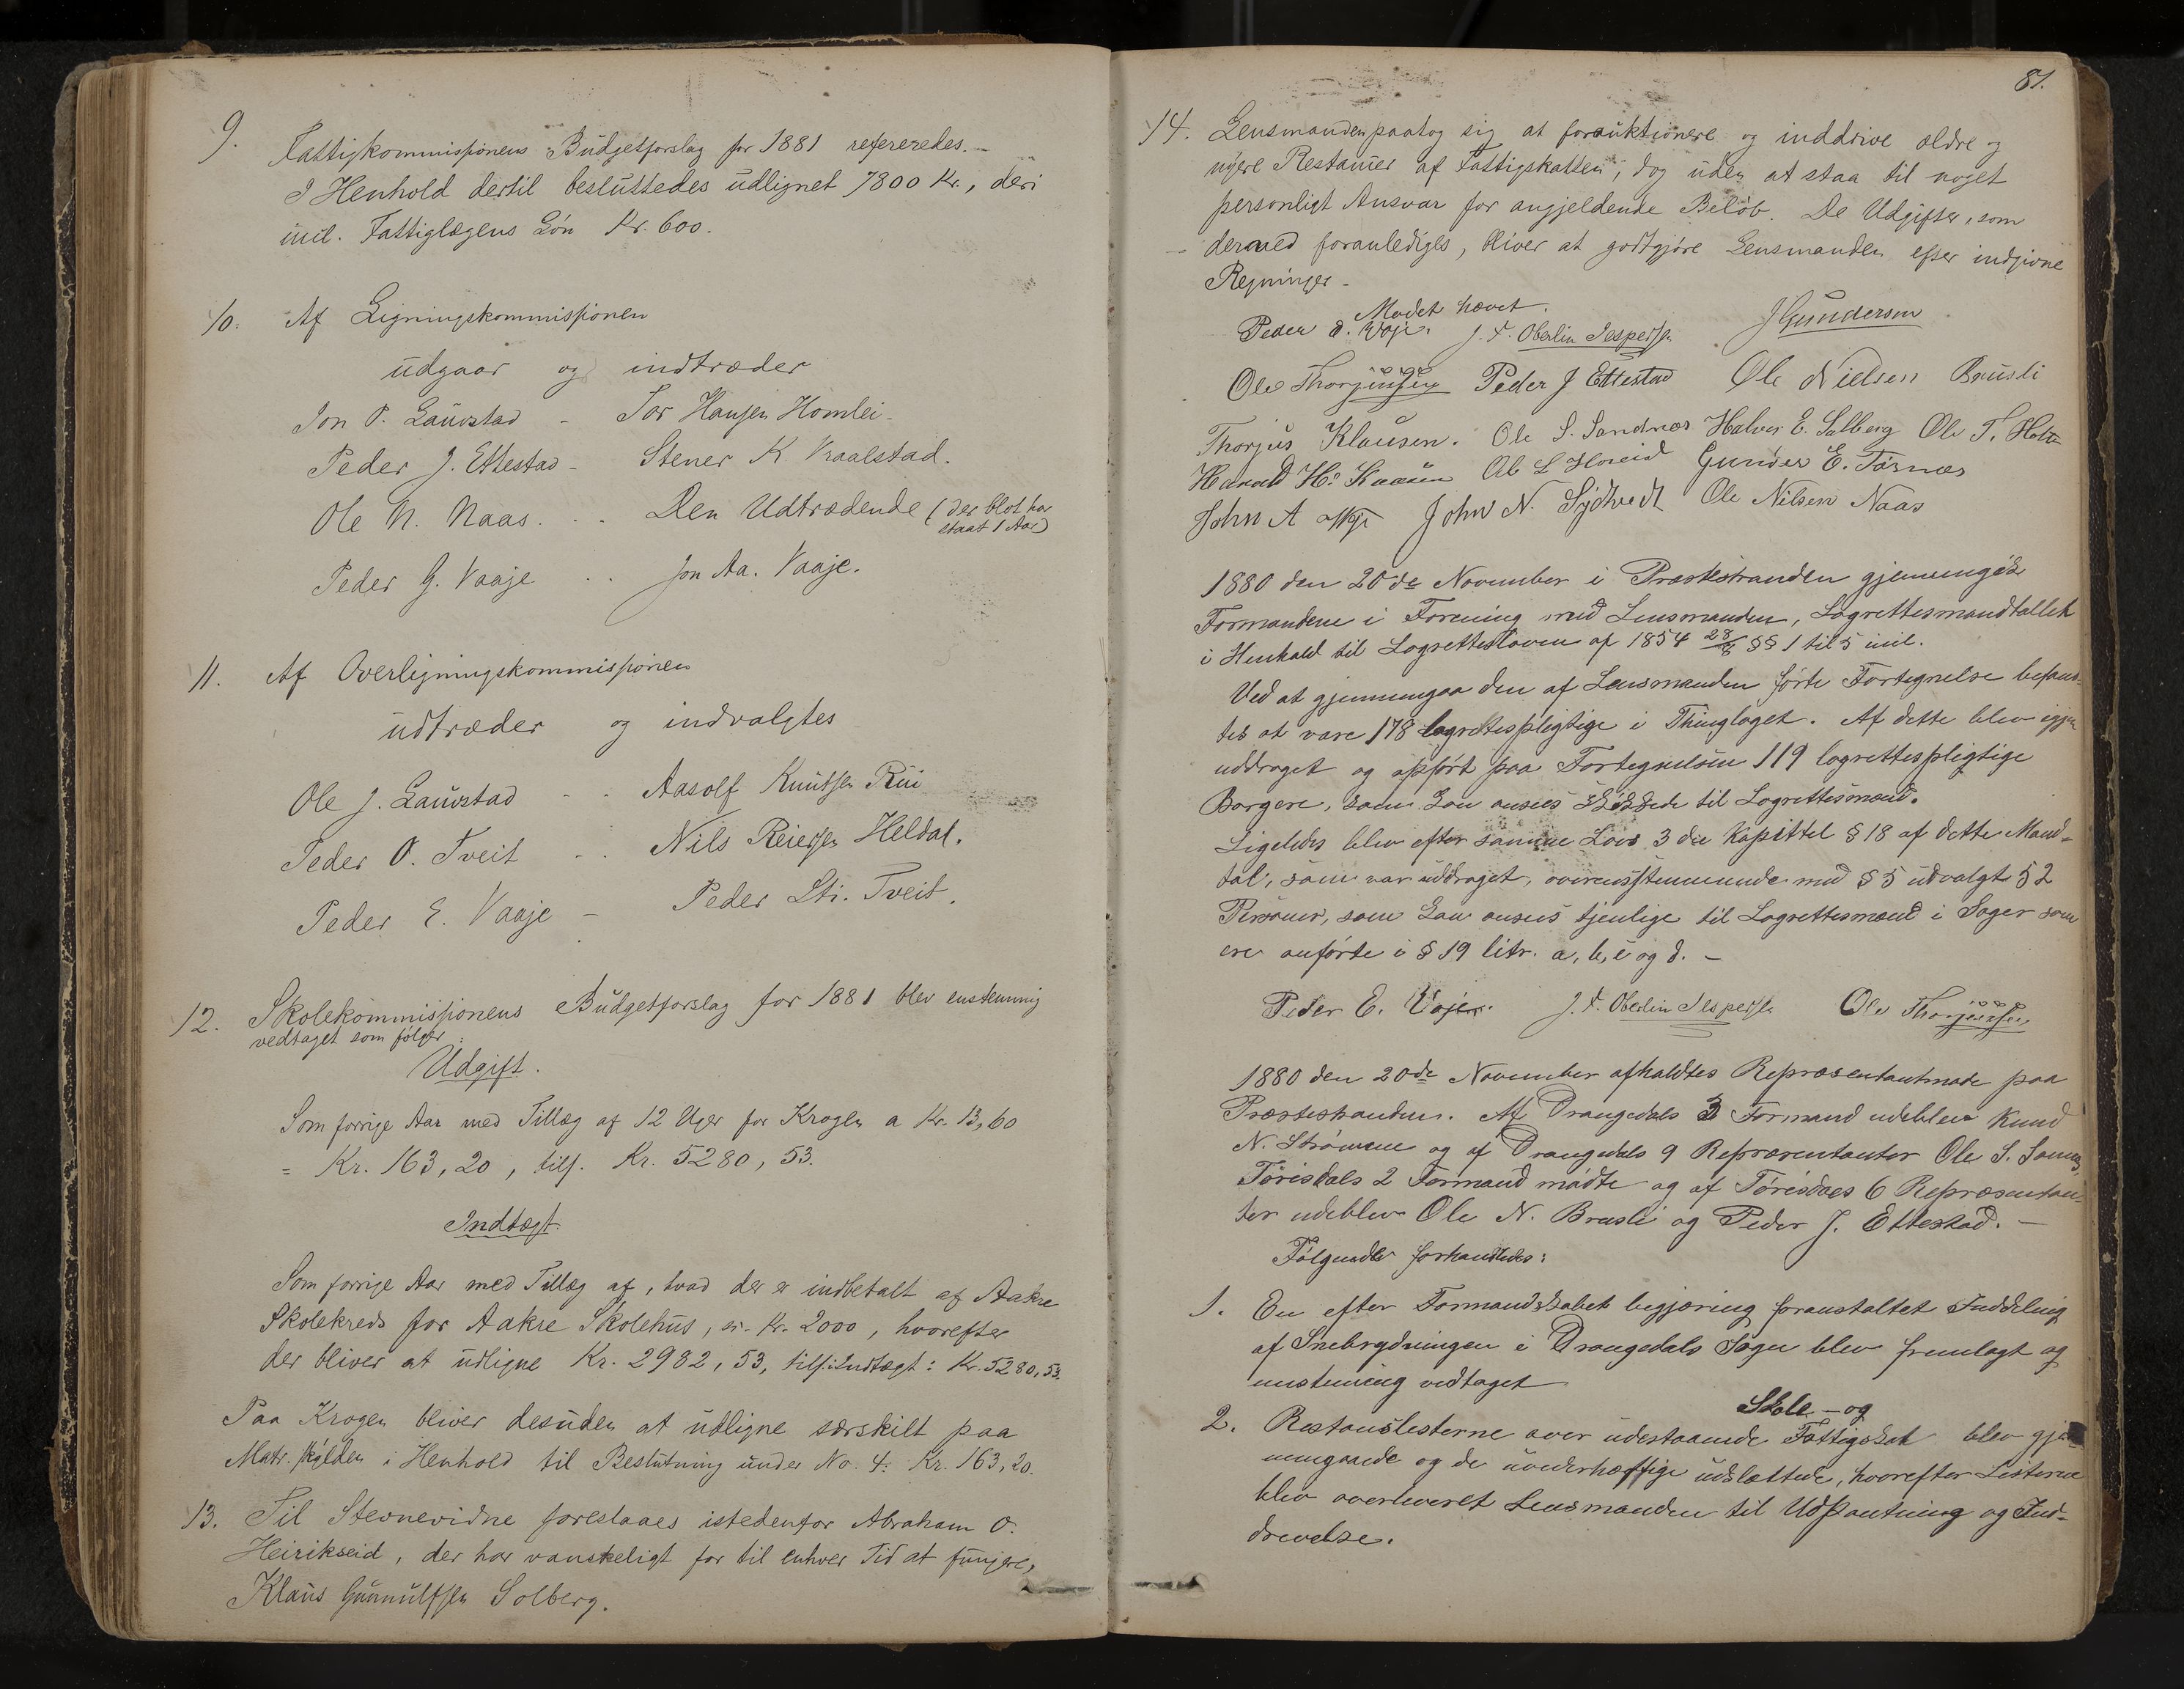 9. Fattigkommissionens Budgetforslag for 1881 refereredes. -
I Henhold dertil besluttedes udlignet 7800 Kr., deri
incl. Fattiglægens Løn Kr. 600.
10. Af Ligningskommissionen
udgaar og indtræder
Jon P. Lauvstad - Tor Hansen Homlei -
Peder J. Ettestad - Stener K. Vraalstad.
Ole N. Naas. . . Den Udtrædende (der blot har
staaet 1 Aar)
Peder G. Vaaje . . Jon Aa. Vaaje.
11. Af Overligningskommissionen
udtræder og indvalgtes
Ole J. Lauvstad - . Aasolf Knutsen Rui
Peder O. Tveit - . Nils Reiersen Heldal.
Peder E. Vaaje - Peder Sti. Tveit.
12. Skolekommissionens Budgetforslag for 1881 blev enstemmig
vedtaget som følger:
Udgift.
Som forrige Aar med Tillæg af 12 Uger for Krogen a Kr. 13,60
= Kr. 163,20, tils. Kr. 5280,53.
Indtægt.
Som forrige Aar med Tillæg af, hvad der er indbetalt af Aakre
Skolekreds for Aakre Skolehus, er Kr. 2000, hvorefter
der bliver at udligne Kr. 2982,53, tils. Indtægt: Kr. 5280,53.
Paa Krogen bliver desuden at udligne særskilt paa
Matr. skylden i Henhold til Beslutning under No. 4: Kr. 163,20.
13. Til Stevnevidne foreslaaes istedenfor Abraham O.
Heirikseid, der har vanskeligt for til enhver Tid at fungere,
Klaus Gunnulfsen Solberg.
81.
14. Lensmanden paatog sig at forauktionere og inddrive ældre og
nyere Restancer af Fattigskatten, dog uden at staa til noget
personligt Ansvar for angjeldende Beløb. De Udgifter, som
derved foranlediges, bliver at godtgjøre Lensmanden efter indgivne
Regninger -
Mødet hævet.
Peder E. Vaje. J. F. Oberlin Jespersen JGundersen
Ole Thorjussen Peder J Ettestad Ole Nielsen Brusli
Thorjus Klausen. Ole S. Sandnes Halvor E. Solberg Ole T. Holte
Harald H. Kaasen Ole L Gunder E. Tørnes
John A John N. Sydtvedt Ole Nilsen Naas
1880 den 20de November i Præstestranden gjennemgik
Formændene i Forening med Lensmanden, Lagrettesmandtallet
i Henhold til Lagretteloven af 1854 28/8 §§ 1 til 5 incl.
Ved at gjennemgaa den af Lensmanden førte Fortegnelse befand-
tes at være 178 lagrettespligtige i Thinglaget. Af dette blev igjen
uddraget og opført paa Fortegnelsen 119 lagrettespligtige
Borgere, som kan ansees skikkede til Lagrettesmænd.
Ligeledes blev efter samme Lovs 3die Kapittel § 18 af dette Mand-
tal, som var uddraget, overensstemmende med § 5 udvalgt 52
Personer, som kan ansees tjenlige til Lagrettesmænd i Sager som
ere anførte i § 19 litr. a, b, c og d. -
Peder E. Vaje. J. F. Oberlin Jespersen Ole Thorjussen
1880 den 20de November afholdtes Repræsentantmøde paa
Præstestranden. Af Drangedals 3 Formænd udeblev Knud
N. Strømme og af Drangedals 9 Repræsentanter Ole S. Sannes,
Tørisdals 2 Formænd mødte og af Tørisdals 6 Repræsentan-
ter udeblev Ole N. Brusli og Peder J. Ettestad. -
Følgende forhandledes:
1. En efter Formandskabets begjæring foranstaltet Inddeling
af Snebrydningen i Drangedals Sogn blev fremlagt og
enstemmig vedtaget
2. Restanslisterne over udestaaende Skole- og Fattigskat blev gjen-
nemgaaede og de uerholdelige udslettede, hvorefter Listerne
blev overleveret Lensmanden til Udpantning og Ind-
drivelse.